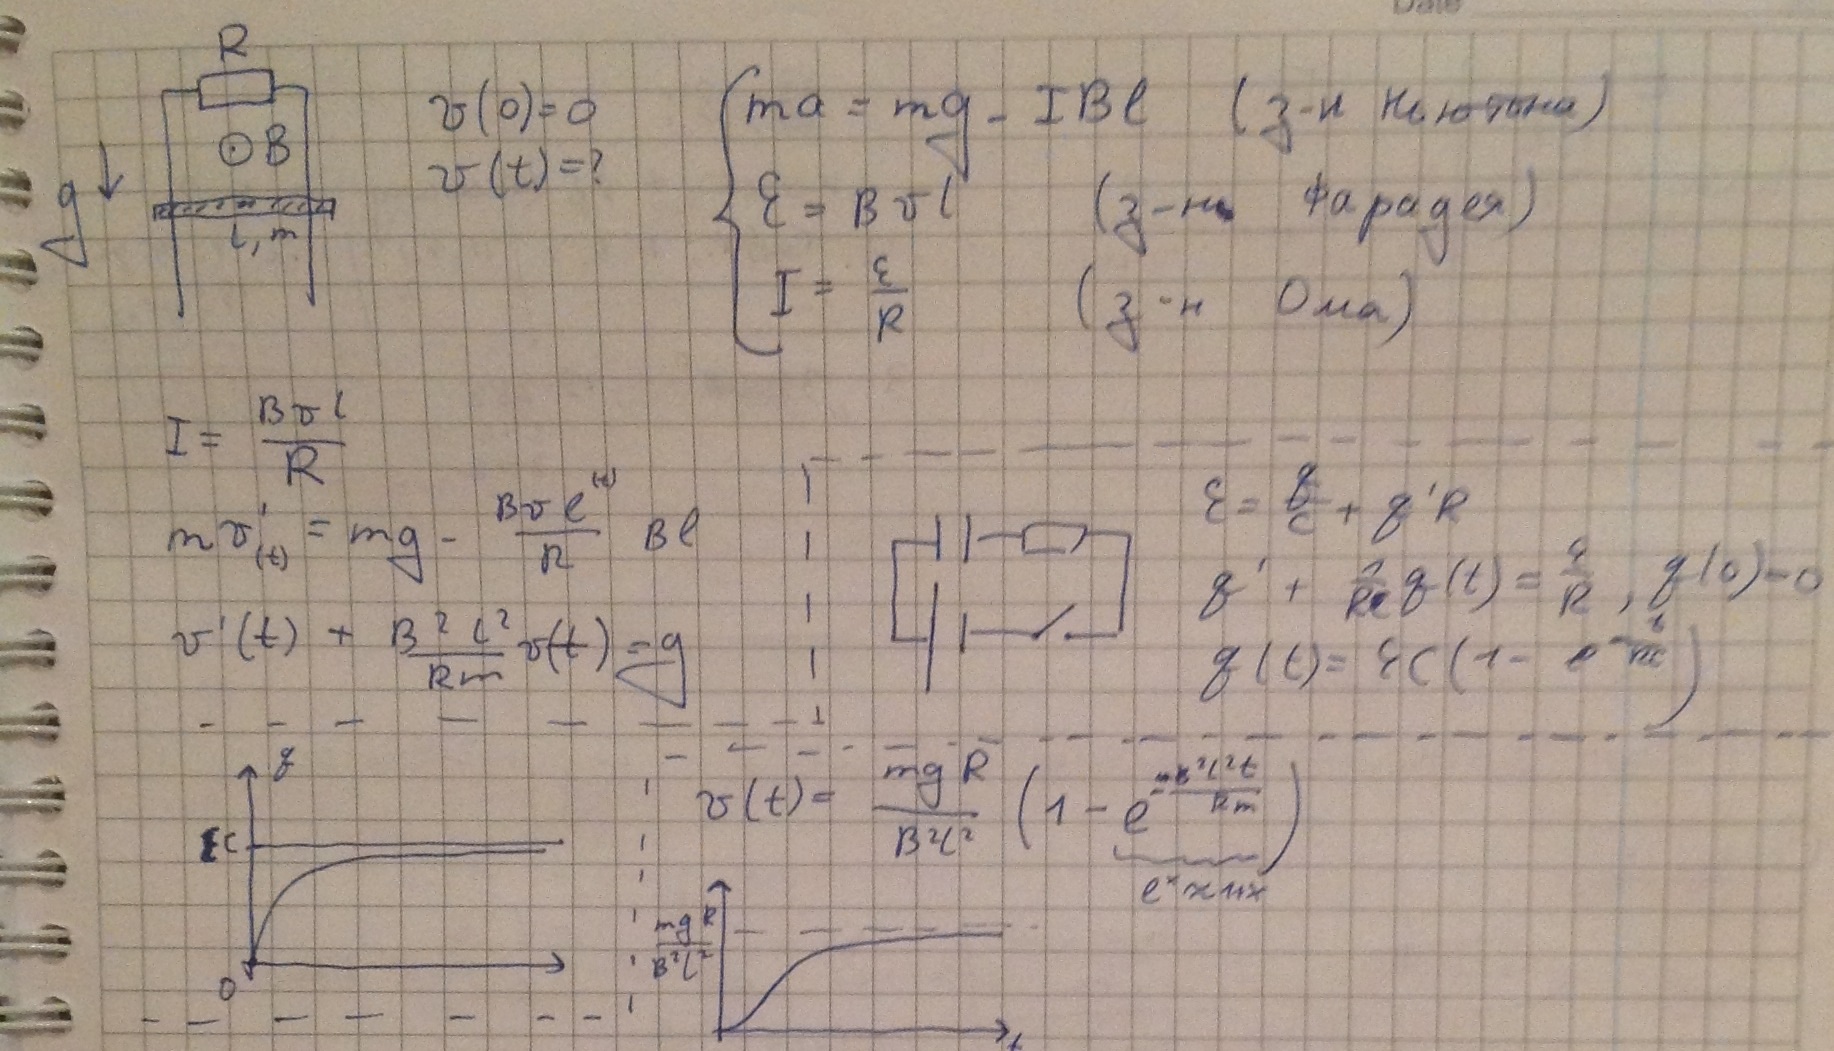 Date
R
B
g
l, m
v(0)=0
v(t)=?
ma = mg - IBl (з-н Ньютона)
ℰ = Bvl (з-н Фарадея)
I = ℰ/R (з-н Ома)
I = Bvl/R
mv'(t) = mg - Bvl(t)/R Bl
v'(t) + B²l²/Rm v(t) = g
ℰ = q/C + q'R
q' + 1/RC q(t) = ℰ/R, q(0)=0
q(t) = ℰC(1 - e^-t/RC)
q
ℰC
0
v(t) = mgR/B²l² (1 - e^-B²l²t/Rm)
mgR/B²l²
t